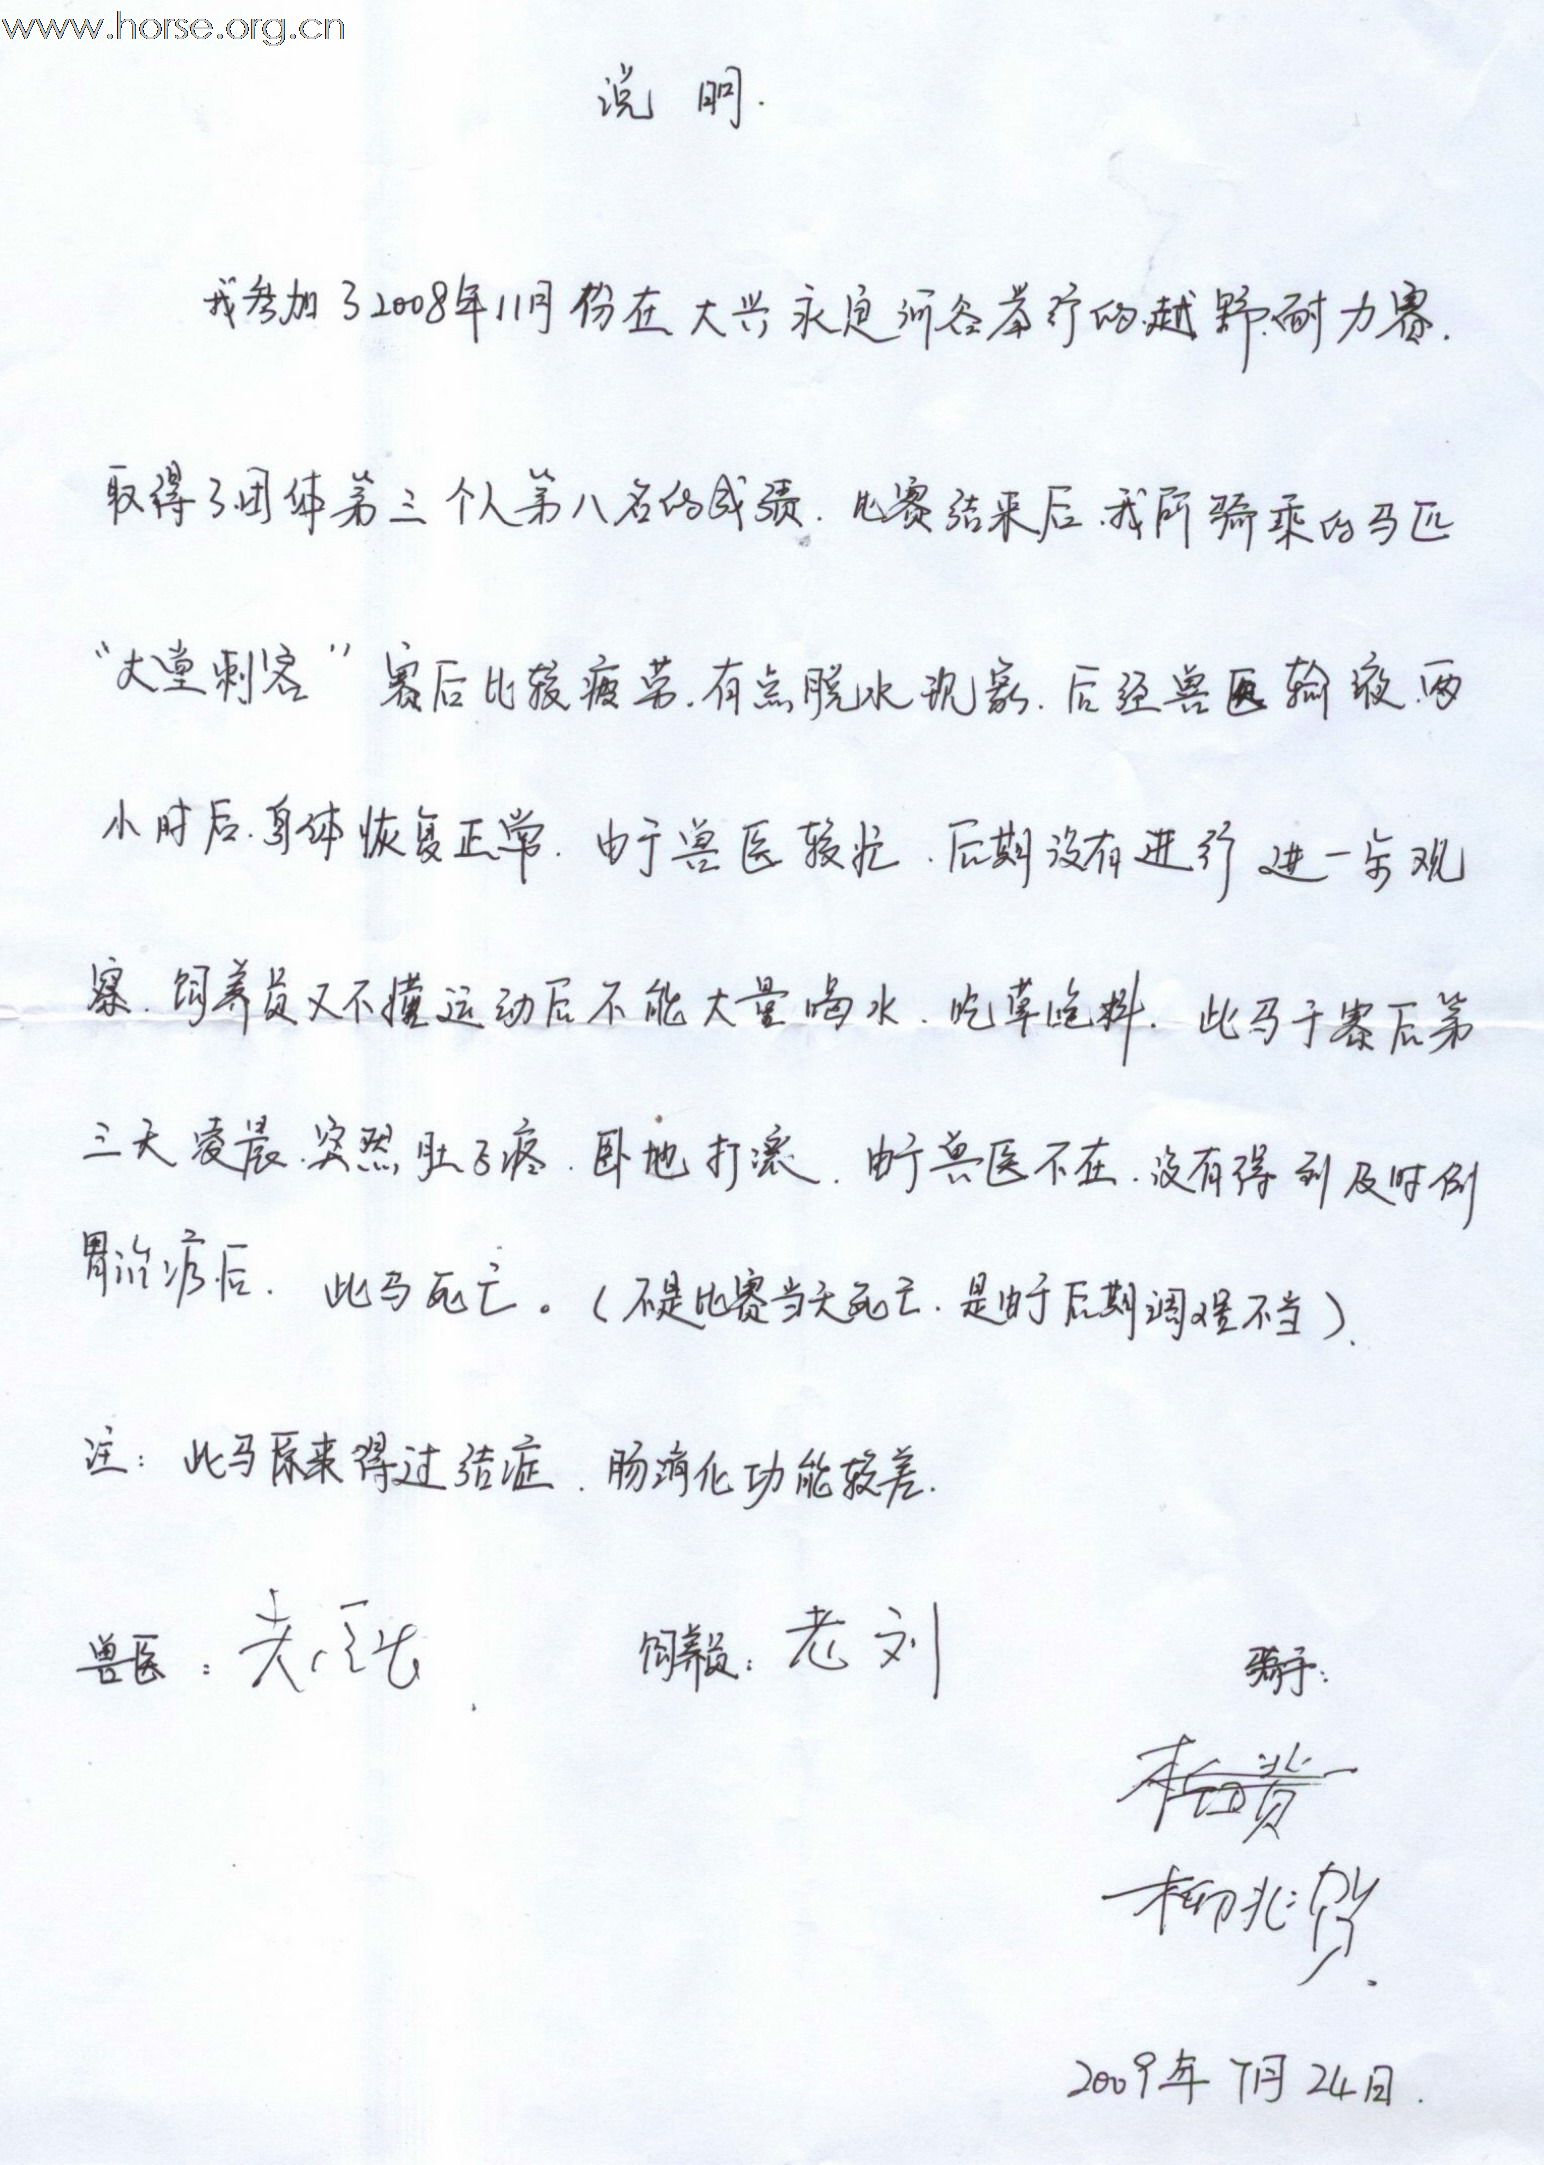 www.horse.org.cn
说 明.
我参加了2008年11月份在大兴永定河谷举行的越野耐力赛.
取得了团体第三个人第八名的成绩. 比赛结束后.我所骑乘的马匹
“大堂刺客” 赛后比较疲劳.有点脱水现象. 后经兽医输液.两
小时后.身体恢复正常. 由于兽医较忙. 后期没有进行进一步观
察. 饲养员又不懂运动后不能大量喝水. 吃草吃料. 此马于赛后第
三天凌晨.突然肚子疼. 卧地打滚. 由于兽医不在.没有得到及时倒
胃治疗后. 此马死亡。(不是比赛当天死亡. 是由于后期调理不当).
注: 此马原来得过结症. 肠消化功能较差.
兽医: 饲养员: 老刘 骑手:
柳兆贺
2009年7月24日.